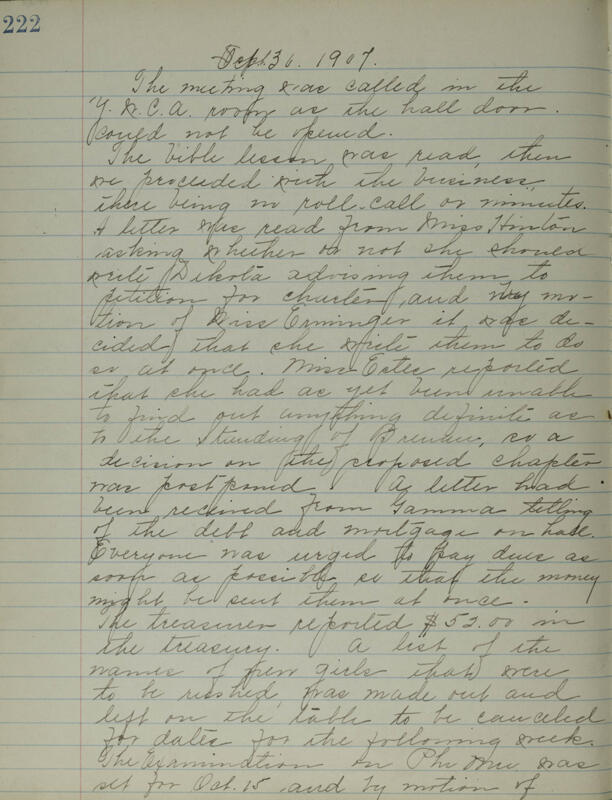 222
Sept. 30. 1907.
The meeting was called in the
Y. W. C. A. room as the hall door
could not be opened.
The bible lesson was read, then
we proceeded with the business,
there being no roll-call or minutes.
A letter was read from Miss Hinton
asking whether or not she should
write Dakota advising them to
petition for charter, and by mo-
tion of Miss Erminger it was de-
cided that she write them to do
so at once. Miss Estee reported
that she had as yet been unable
to find out anything definite as
to the standing of Brenau, so a
decision on the proposed chapter
was postponed. A letter had
been received from Gamma telling
of the debt and mortgage on hall.
Everyone was urged to pay dues as
soon as possible so that the money
might be sent them at once.
The treasurer reported $52.00 in
the treasury. A list of the
names of new girls that were
to be rushed, was made out and
left on the table to be canceled
for dates for the following week.
The Examination on Phi Mu was
set for Oct. 15, and by motion of